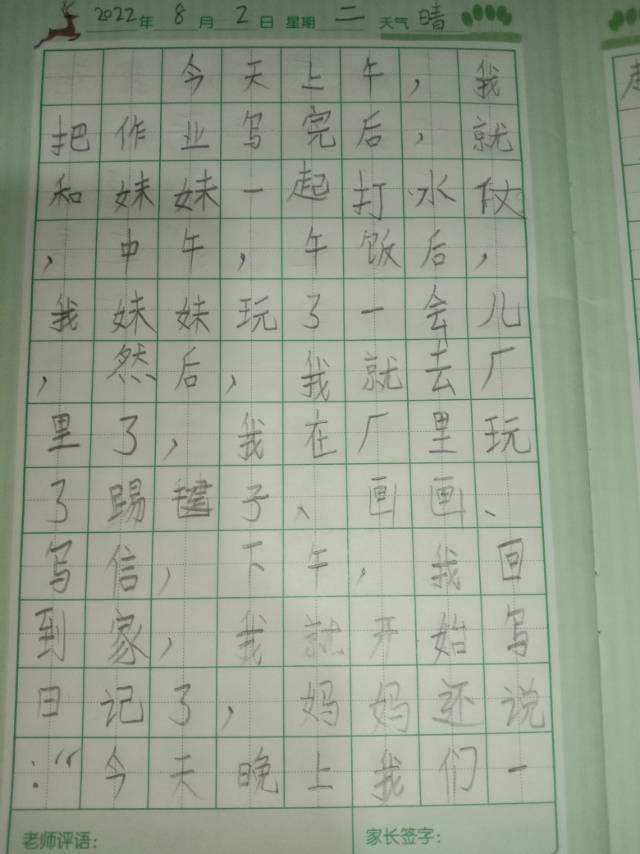 2022年 8月 2日 星期二 天气晴
今天上午，我
把作业写完后，就
和妹妹一起打水仗
，中午，午饭后，
我妹妹玩了一会儿
，然后，我就去厂
里了，我在厂里玩
了踢毽子、画画、
写信，下午，我回
到家，我就开始写
日记了，妈妈还说
：“今天晚上我们一
老师评语： 家长签字：